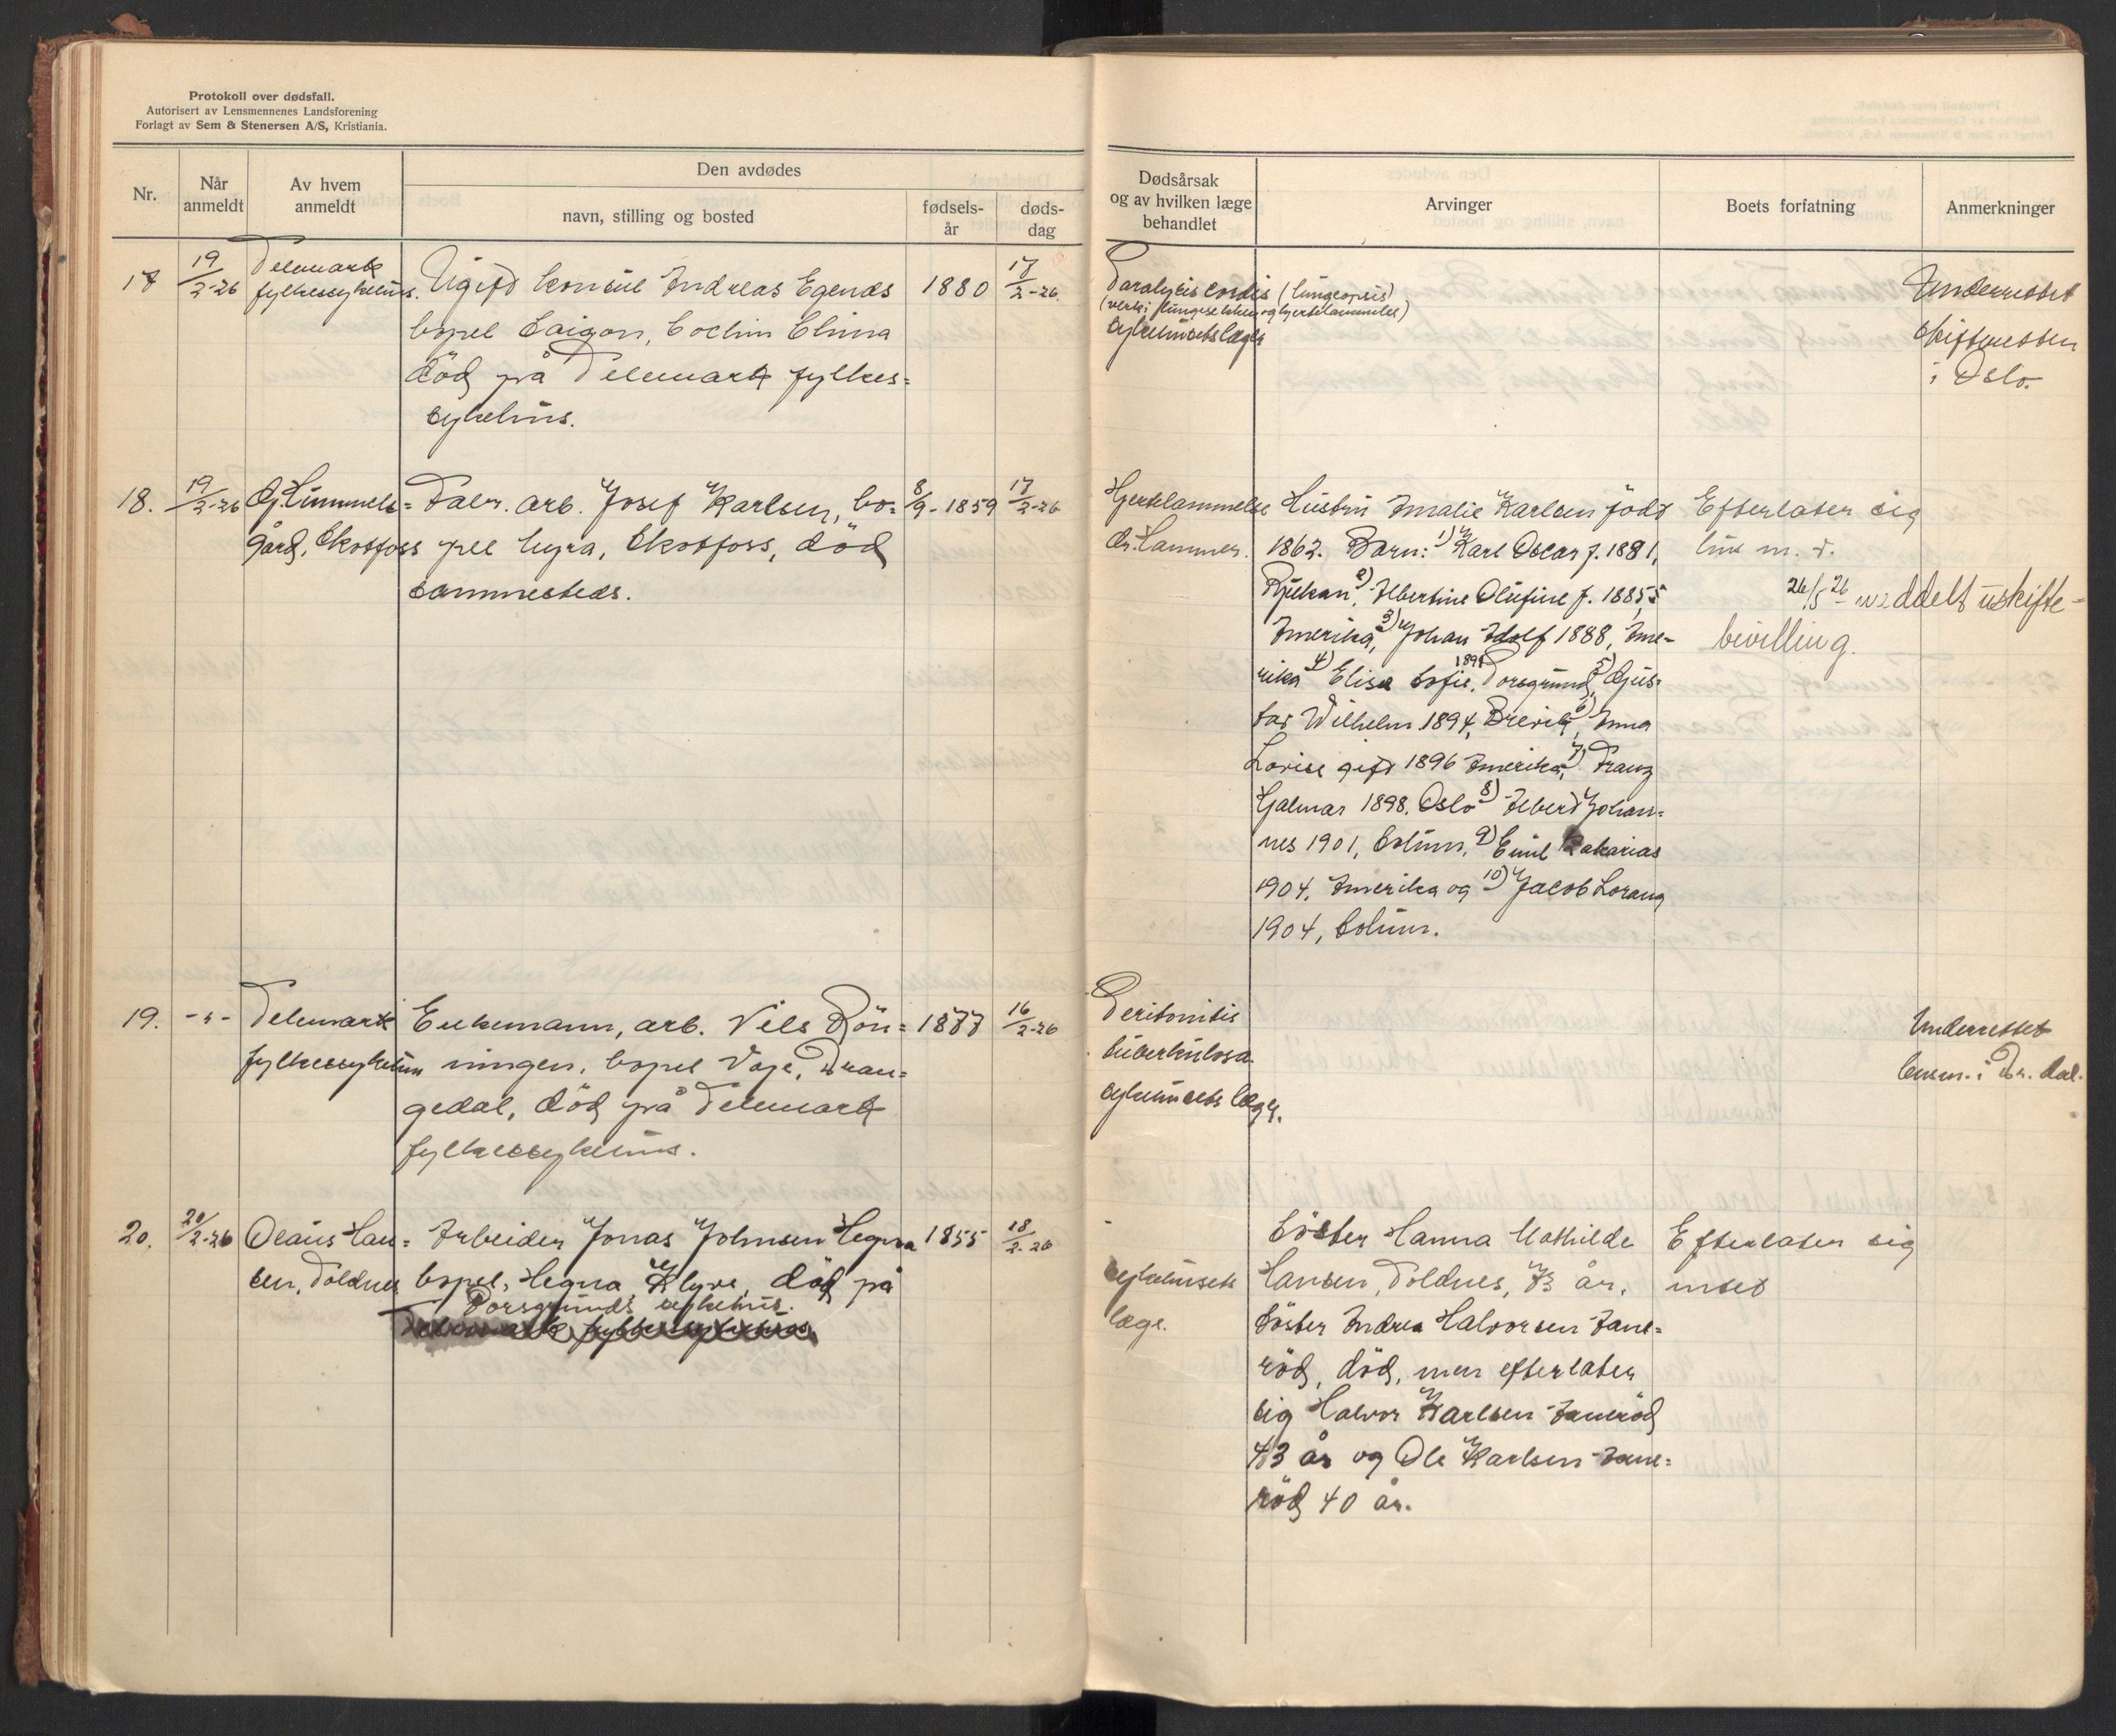 Protokoll over dødsfall.
Autorisert av Lensmennenes Landsforening
Forlagt av Sem & Stenersen A/S, Kristiania.
Nr.
Når anmeldt
Av hvem anmeldt
Den avdødes
navn, stilling og bosted
fødsels-år
døds-dag
Dødsårsak og av hvilken læge behandlet
Arvinger
Boets forfatning
Anmerkninger
17 19/2-26 Telemark Ugift konsul Andreas Egenæs 1880 17/2-26
fylkessykehus. bopel Saigon, Cochin China
död på Telemark fylkes=
sykehus.
Paralysis cordis
sykehusets læge
Underrettet
skifteretten
i Oslo.
18. 19/2-26 Gj. Himmels= Fabr. arb. Josef Karlsen, bo= 8/9-1859 17/2-26
gård, Skotfoss pel Myra, Skotfoss, död
sammesteds.
Hjertelammelse
dr. Hammer.
Hustru Amalie Karlsen född
1862. Barn: 1) Karl Oscar f. 1881,
Rjukan, 2) Albertine Olufine f. 1885,
Amerika, 3) Johan Adolf 1888, Ame-
rika 4) Elise Sofie, 1891 Porsgrund, 5) Gus=
tav Wilhelm 1894, Brevik, 6) Anna
Lovise gift 1896 Amerika, 7) Franz
Hjalmar 1898. Oslo 8) Albert Johan=
nes 1901, Solum, 9) Emil Zakarias
1904, Amerika og 10) Jacob Lorang
1904, Solum.
Efterlater sig
hus m. v.
26/5 26 meddelt uskifte-
bevilling.
19. -"- Telemark Enkemann, arb. Nils Rön= 1877 16/2-26
fylkessykehus ningen, bopel Voje, Dran=
gedal, död på Telemark
fylkessykehus.
Peritonitis
tuberkulosa
sykehusets læge.
Underrettet
lensm. i Dr. dal.
20. 20/2-26 Olaus Han= Arbeider Jonas Johnsen Hegna 1855 18/2-26
sen, Toldnes bopel, Hegna Klyve, död på
Porsgrunds sykehus.
Telemark fylkessykehus
sykehusets
læge.
Söster Hanna Mathilde
Hansen, Toldnes, 73 år.
Söster Andrea Halvorsen Jane=
röd, död, men efterlater
sig Halvor Karlsen Janeröd
43 år og Ole Karlsen Jane=
röd 40 år.
Efterlater sig
intet